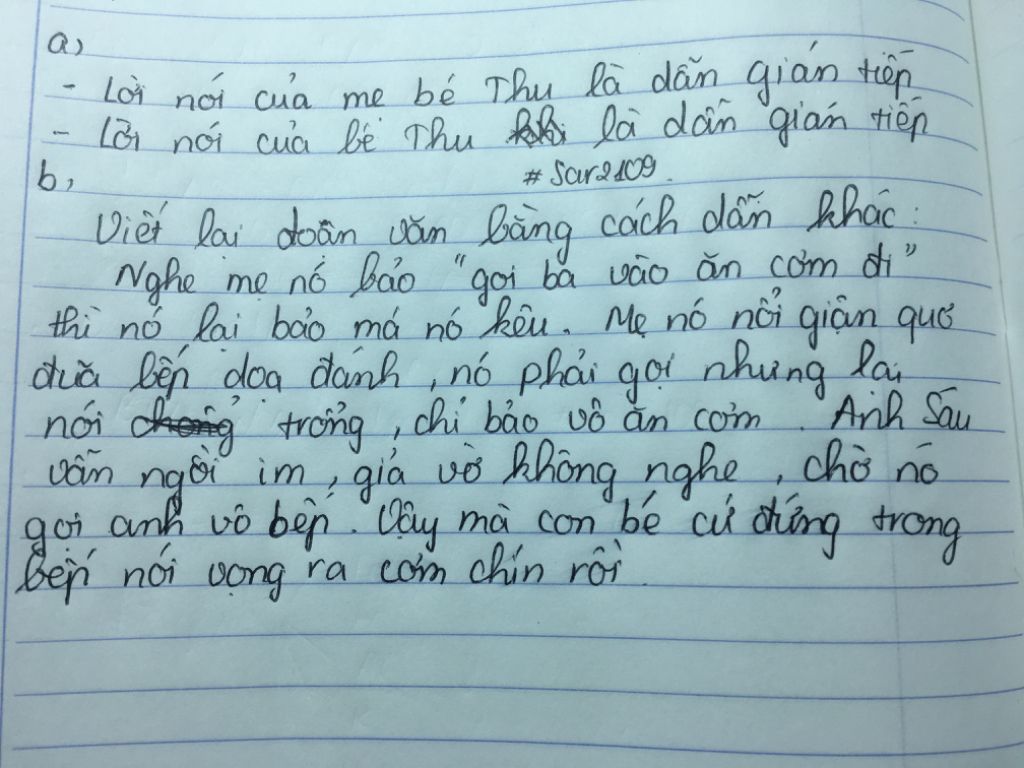 a,
- Lời nói của mẹ bé Thu là dẫn gián tiếp
- Lời nói của bé Thu là dẫn gián tiếp
b, #Sar2109.
Viết lại đoạn văn bằng cách dẫn khác:
Nghe mẹ nó bảo "gọi ba vào ăn cơm đi"
thì nó lại bảo má nó kêu. Mẹ nó nổi giận quơ
đũa bếp dọa đánh, nó phải gọi nhưng lại
nói trổng, chỉ bảo vô ăn cơm. Anh Sáu
vẫn ngồi im, giả vờ không nghe, chờ nó
gọi anh vô bếp. Vậy mà con bé cứ đứng trong
bếp nói vọng ra cơm chín rồi.